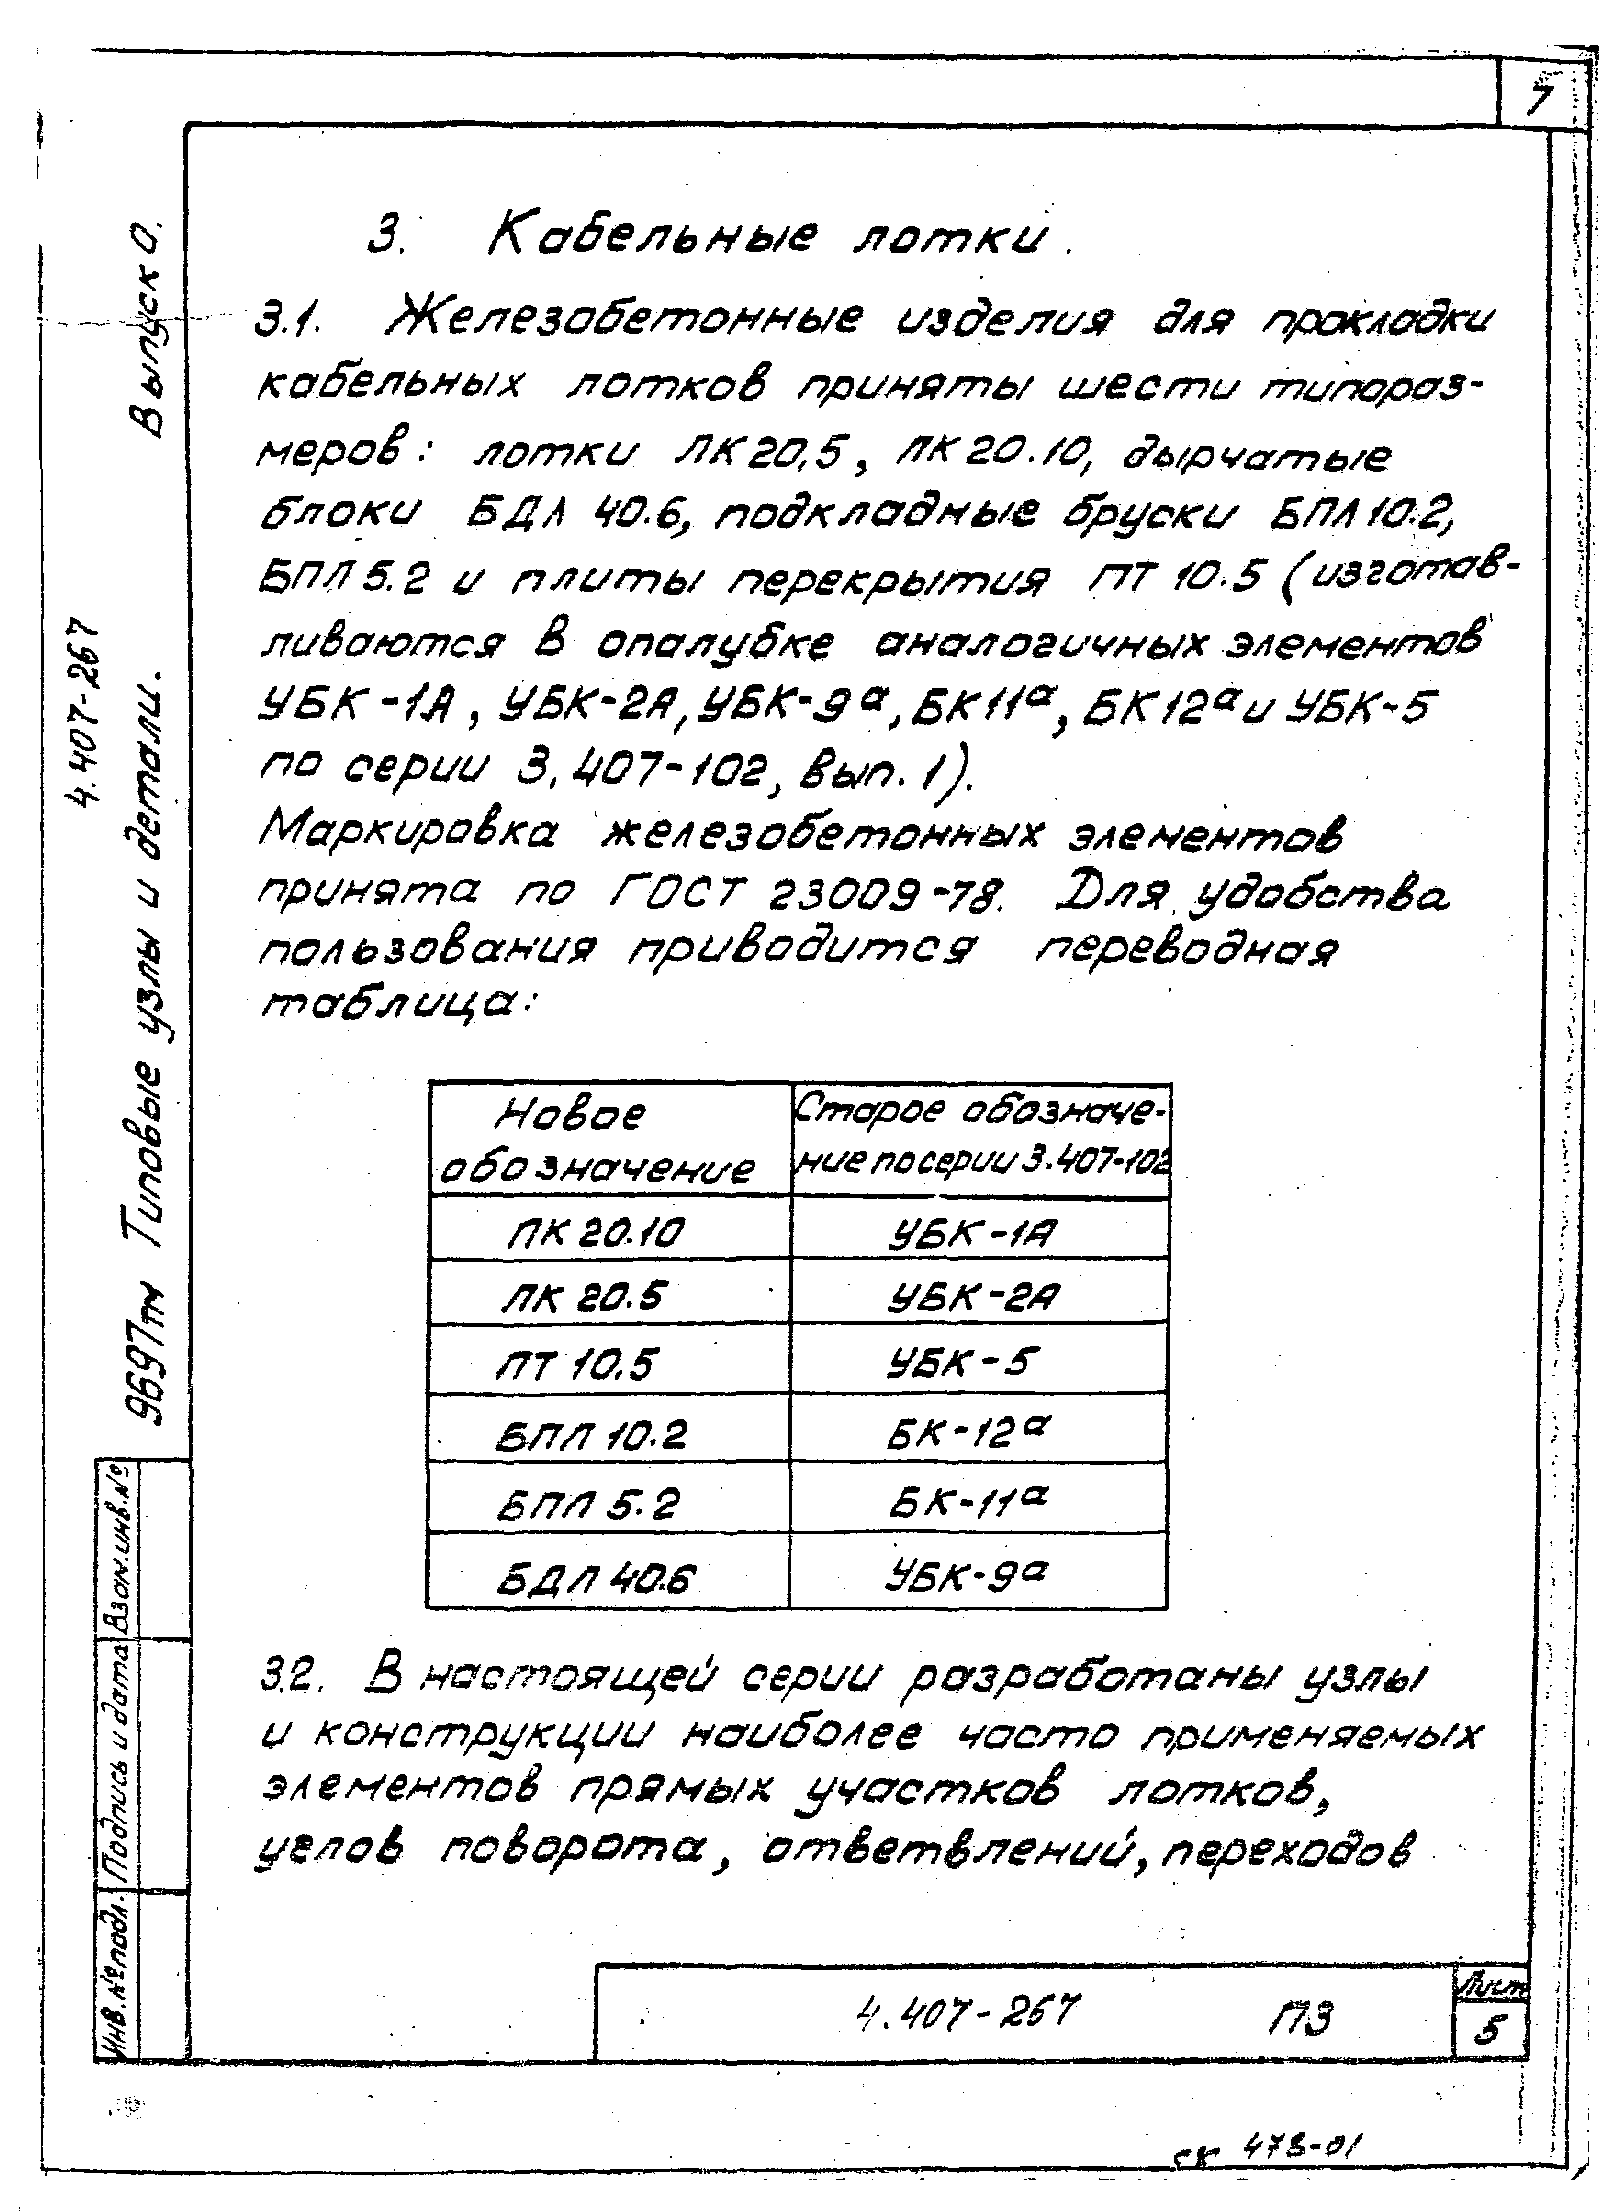 7
3. Кабельные лотки.
3.1. Железобетонные изделия для прокладки
кабельных лотков приняты шести типораз-
меров: лотки ЛК 20,5, ЛК 20.10, дырчатые
блоки БДЛ 40.6, подкладные бруски БПЛ 10.2,
БПЛ 5.2 и плиты перекрытия ПТ 10.5 (изготав-
ливаются в опалубке аналогичных элементов
УБК-1А, УБК-2А, УБК-9а, БК11а, БК12а и УБК-5
по серии 3.407-102, вып. 1).
Маркировка железобетонных элементов
принята по ГОСТ 23009-78. Для удобства
пользования приводится переводная
таблица:
Новое
обозначение
Старое обозначе-
ние по серии 3.407-102
ЛК 20.10 УБК-1А
ЛК 20.5 УБК-2А
ПТ 10.5 УБК-5
БПЛ 10.2 БК-12а
БПЛ 5.2 БК-11а
БДЛ 40.6 УБК-9а
3.2. В настоящей серии разработаны узлы
и конструкции наиболее часто применяемых
элементов прямых участков лотков,
углов поворота, ответвлений, переходов
4.407-267 ПЗ
Лист
5
ск 473-01
4.407-267
9697тм Типовые узлы и детали. Выпуск 0.
Инв. № подл. Подпись и дата Взам. инв. №